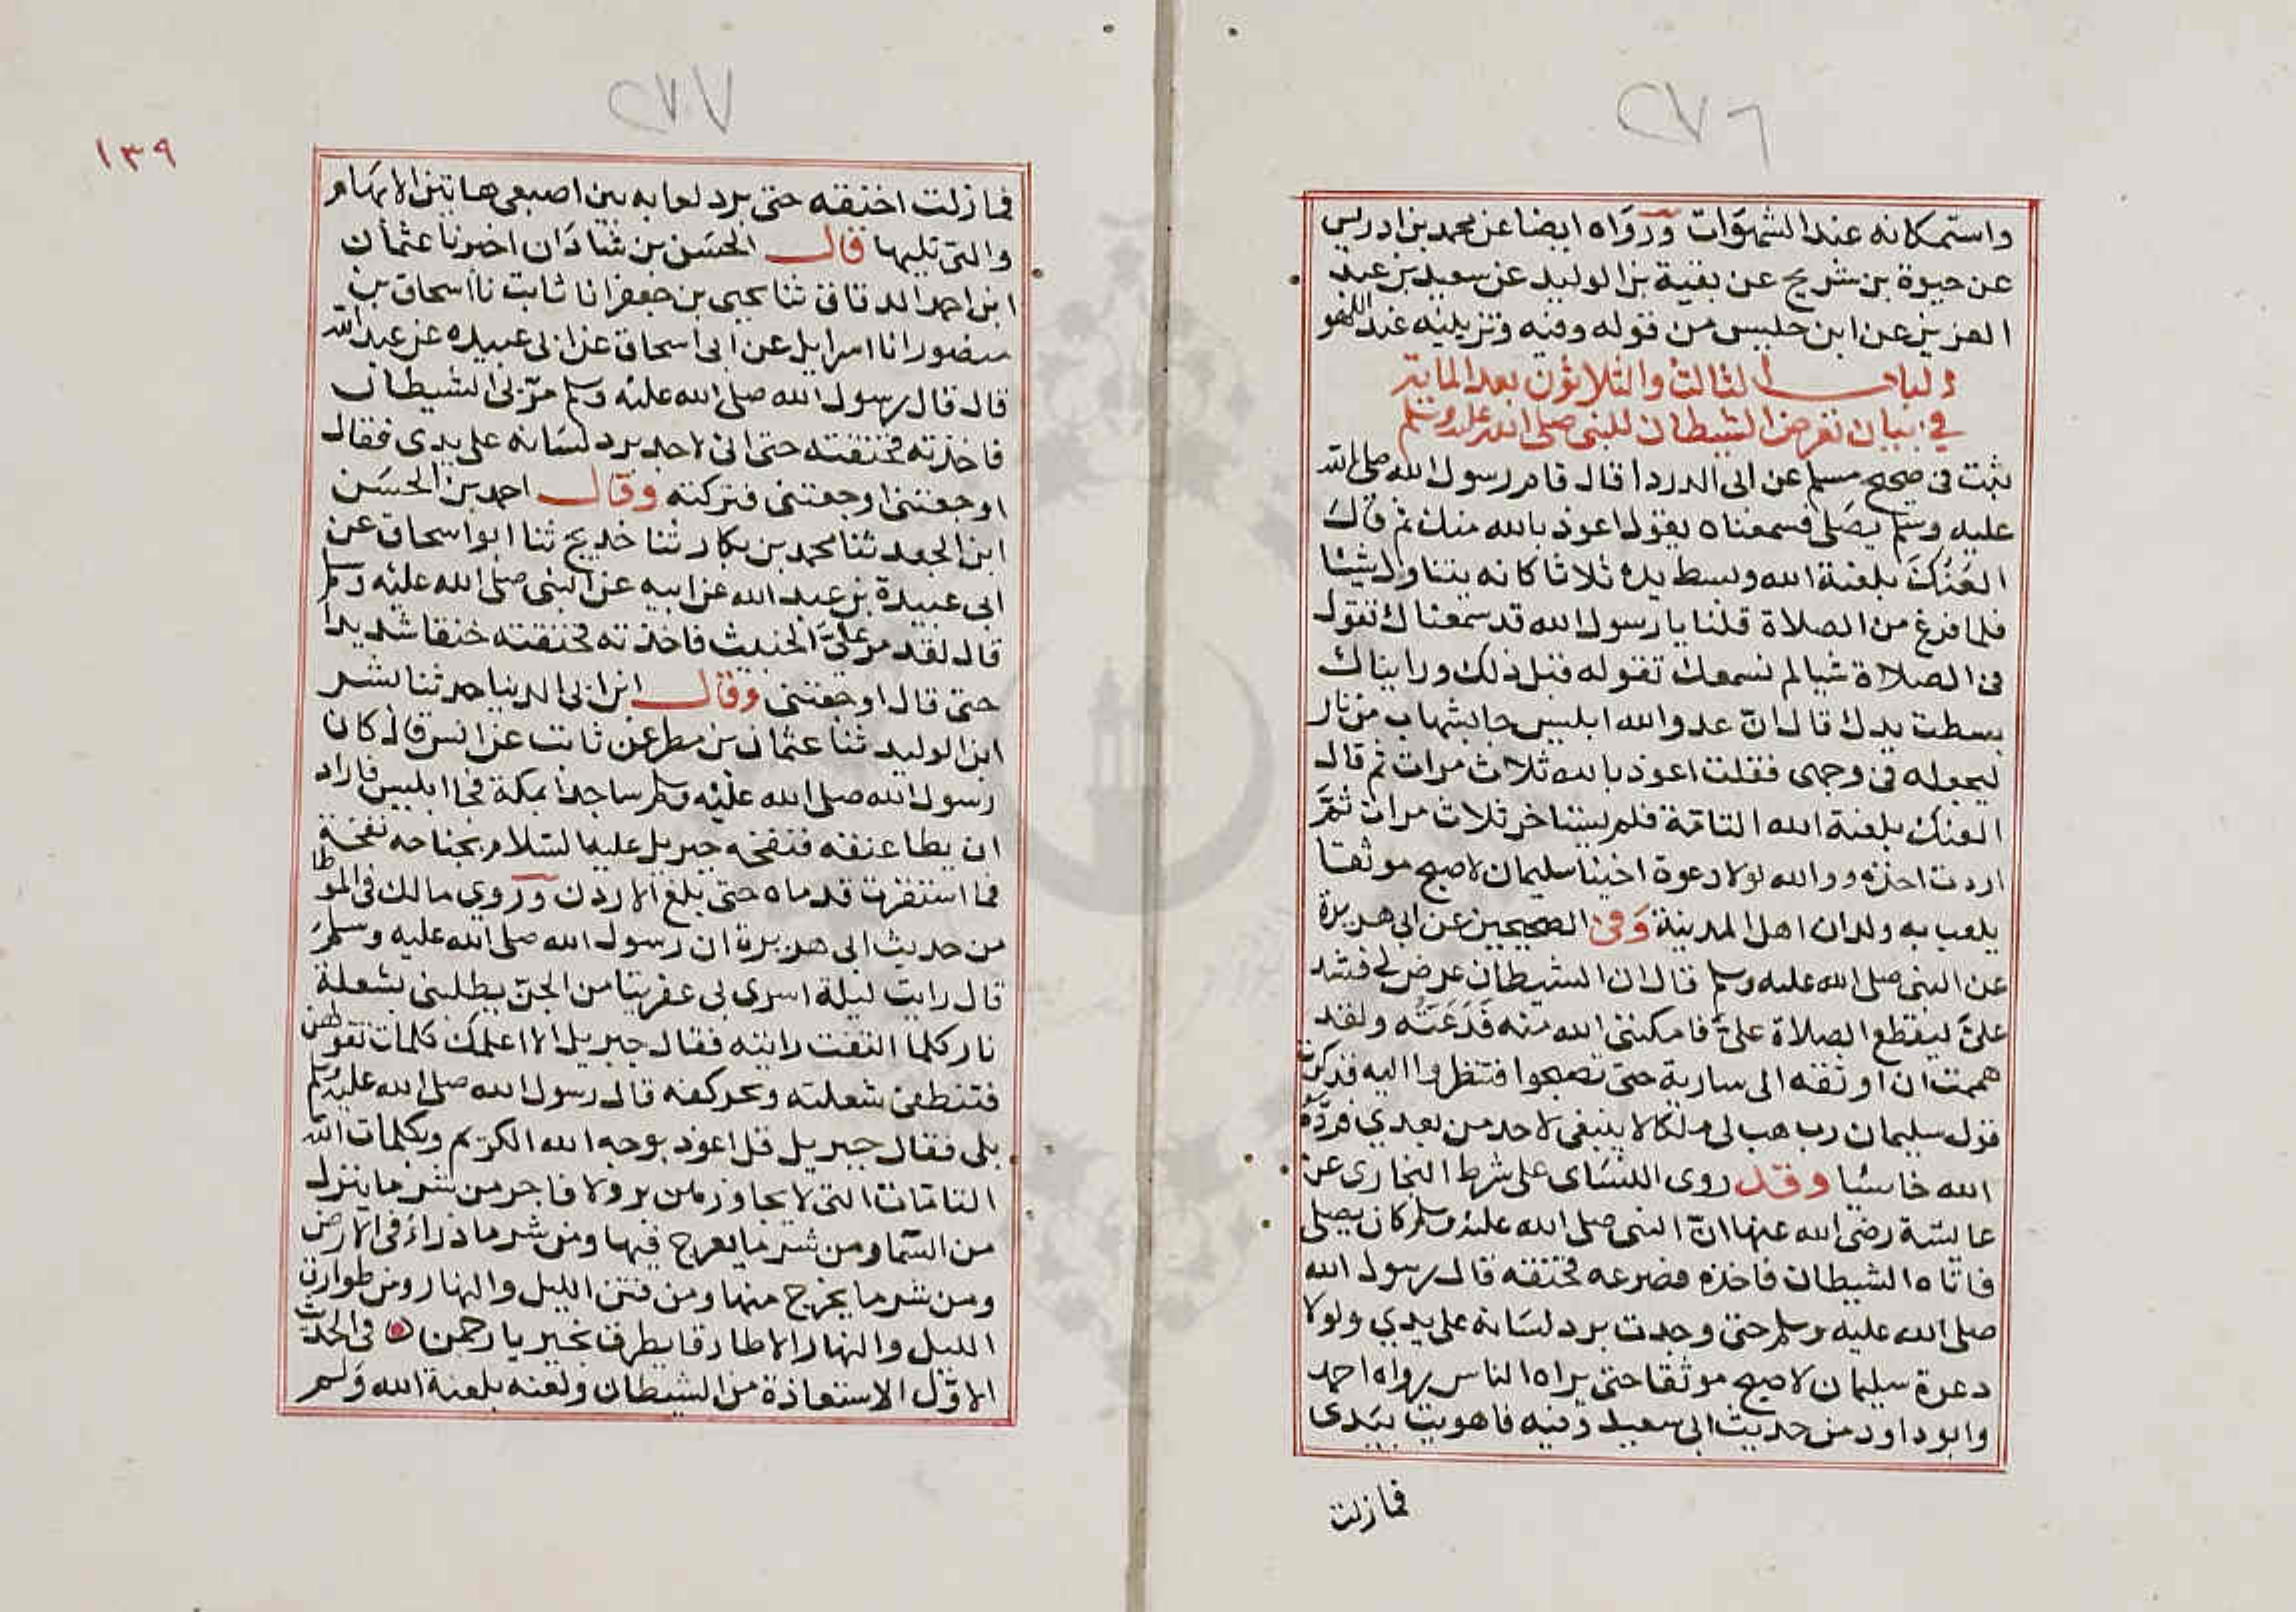 ٢٧٦
واستمكانه عند الشهوات ورواه ايضا عن محمد بن ادريس
عن حيوة بن شريح عن بقية بن الوليد عن سعيد بن عبد
العزيز عن ابن حليس من قوله وفيه وتزيينه عند الهو
الباب الثالث والثلاثون بعد الماية
في بيان تعرض الشيطان للنبي صلى الله عليه وسلم
ثبت فى صحيح مسلم عن ابى الدردا قال قام رسول الله صلى الله
عليه وسلم يصلى فسمعناه يقول اعوذ بالله منك ثم قال
العنك بلعنة الله وبسط يده ثلاثا كانه يتناول شيئا
فلما فرغ من الصلاة قلنا يا رسول الله قد سمعناك تقول
فى الصلاة شيا لم نسمعك تقوله قبل ذلك ورايناك
بسطت يدك قال انّ عدو الله ابليس جا بشهاب من نار
ليجوله فى وجهى فقلت اعوذ بالله ثلاث مرات ثم قال
العنك بلعنة الله التامة فلم يستاخر ثلاث مرات ثمّ
اردت اخذه ووالله لولا دعوة اخينا سليمان لاصبح موثقا
يلعب به ولدان اهل المدينة وَفى الصحيحين عن ابى هريرة
عن النبى صلى الله عليه وسلم قال ان الشيطان عرض لى فشد
علىّ ليقطع الصلاة علىّ فامكننى الله منه فَذَعَتُّه ولقد
هممت ان اوثقه الى سارية حتى تصبحوا فتنظروا اليه فذكرت
قول سليمان رب هب لى ملكا لا ينبغى لاحد من بعدي فردّه
الله خاسئا وقد روى النسَاى على شرط البخارى عن
عايشة رضى الله عنها انّ النبى صلى الله عليه وسلم كان يصلى
فاتاه الشيطان فاخذه فصرعه فخنقه قال رسول الله
صلى الله عليه وسلم حتى وجدت برد لسَانه على يدي ولولا
دعوة سليمان لاصبح موثقا حتى يراه الناس رواه احمد
وابو داود من حديث ابى سعيد وفيه فاهويت بيَدى
فما زلت
٢٧٧
١٣٩
فما زلت اخنقه حتى برد لعابه بين اصبعى هاتين الابهَام
والتى تليها قال الحسَن بن شاذان اخبرنا عثمان
ابن احمد الدقاق ثنا يحيى بن جعفر انا ثابت نا اسحاق بن
منصور انا اسرايل عن ابى اسحاق عن ابى عبيده عن عبد الله
قال قال رسول الله صلى الله عليه وسلم مرّ بى الشيطان
فاخذته فخنقته حتى انى لاجد برد لسَانه على يدى فقال
اوجعتنى اوجعتنى فتركته وقال احمد بن الحسَن
ابن الجعد ثنا محمد بن بكار ثنا خديج ثنا ابو اسحاق عن
ابى عبيدة بن عبد الله عن ابيه عن النبى صلى الله عليه وسلم
قال لقد مر علىّ الخبيث فاخذته فخنقته خنقا شديدا
حتى قال اوجعتنى وقال ابن ابى الدنيا حدثنا بشر
ابن الوليد ثنا عثمان بن مطر عن ثابت عن انس قال كان
رسول الله صلى الله عليه وسلم ساجدا بمكة فجا ابليس فاراد
ان يطا عنقه فنفخه جبريل عليه السّلام بجناحه نفخة
فما استقرت قدماه حتى بلغ الاردن وروي مالك فى الموطا
من حديث ابى هريرة ان رسول الله صلى الله عليه وسلم
قال رايت ليلة اسرى بى عفريتا من الجنّ يطلبنى بشعلة
نار كلما التفت رايته فقال جبريل الا اعلمك كلمات تقولهن
فتنطفئ شعلته ويخر كفه قال رسول الله صلى الله عليه وسلم
بلى فقال جبريل قل اعوذ بوجه الله الكريم وبكلمات الله
التامات التى لا يجاوزهن بر ولا فاجر من شر ما ينزل
من السّما ومن شر ما يعرج فيها ومن شر ما ذراء فى الارض
ومن شر ما يخرج منها ومن فتن الليل والنهار ومن طوارق
الليل والنهار الا طارقا يطرق بخير يا رحمن ٥ فى الحديث
الاوّل الاستعاذة من الشيطان ولعنه بلعنة الله وَلم